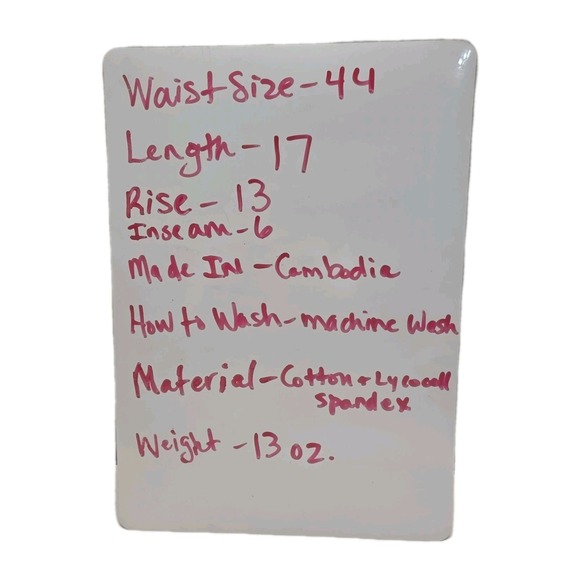 Waist Size - 44
Length - 17
Rise - 13
Inseam - 6
Made IN - Cambodia
How to Wash - machine Wash
Material - Cotton + Lyocell
Spandex
Weight - 13 oz.